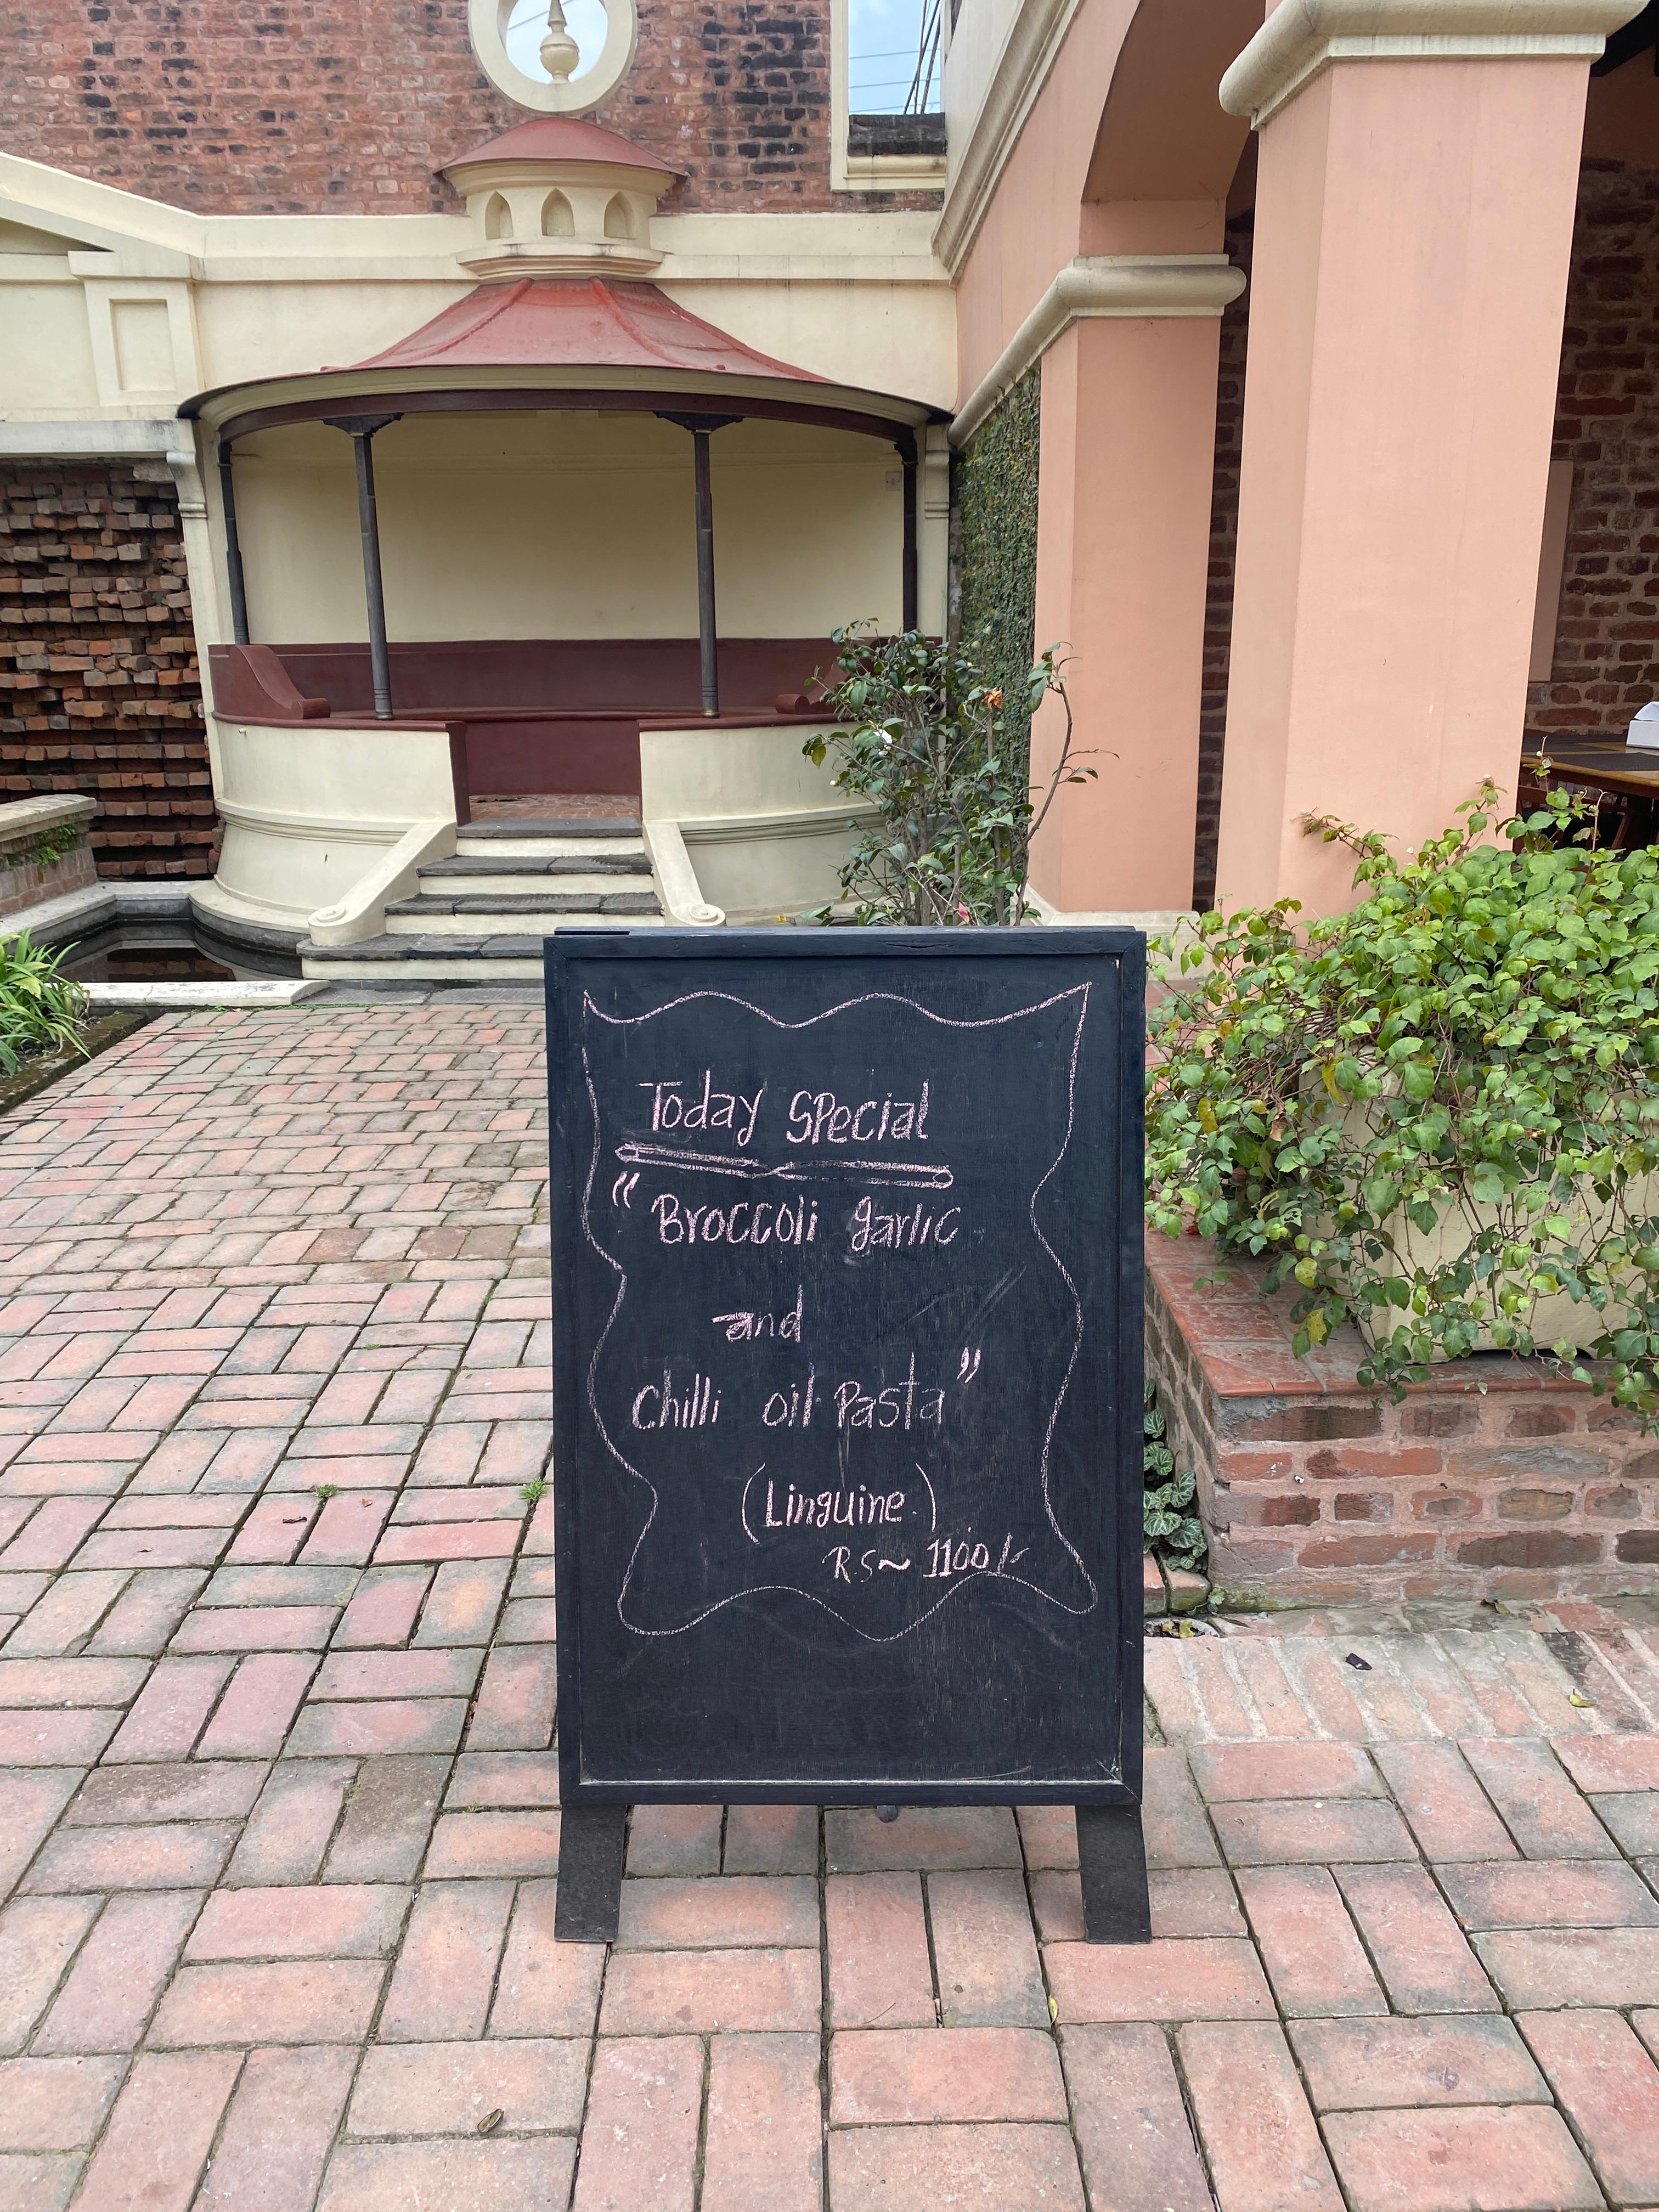 Today Special
"Broccoli garlic
and
Chilli oil Pasta"
(Linguine)
R.S~ 1100/-